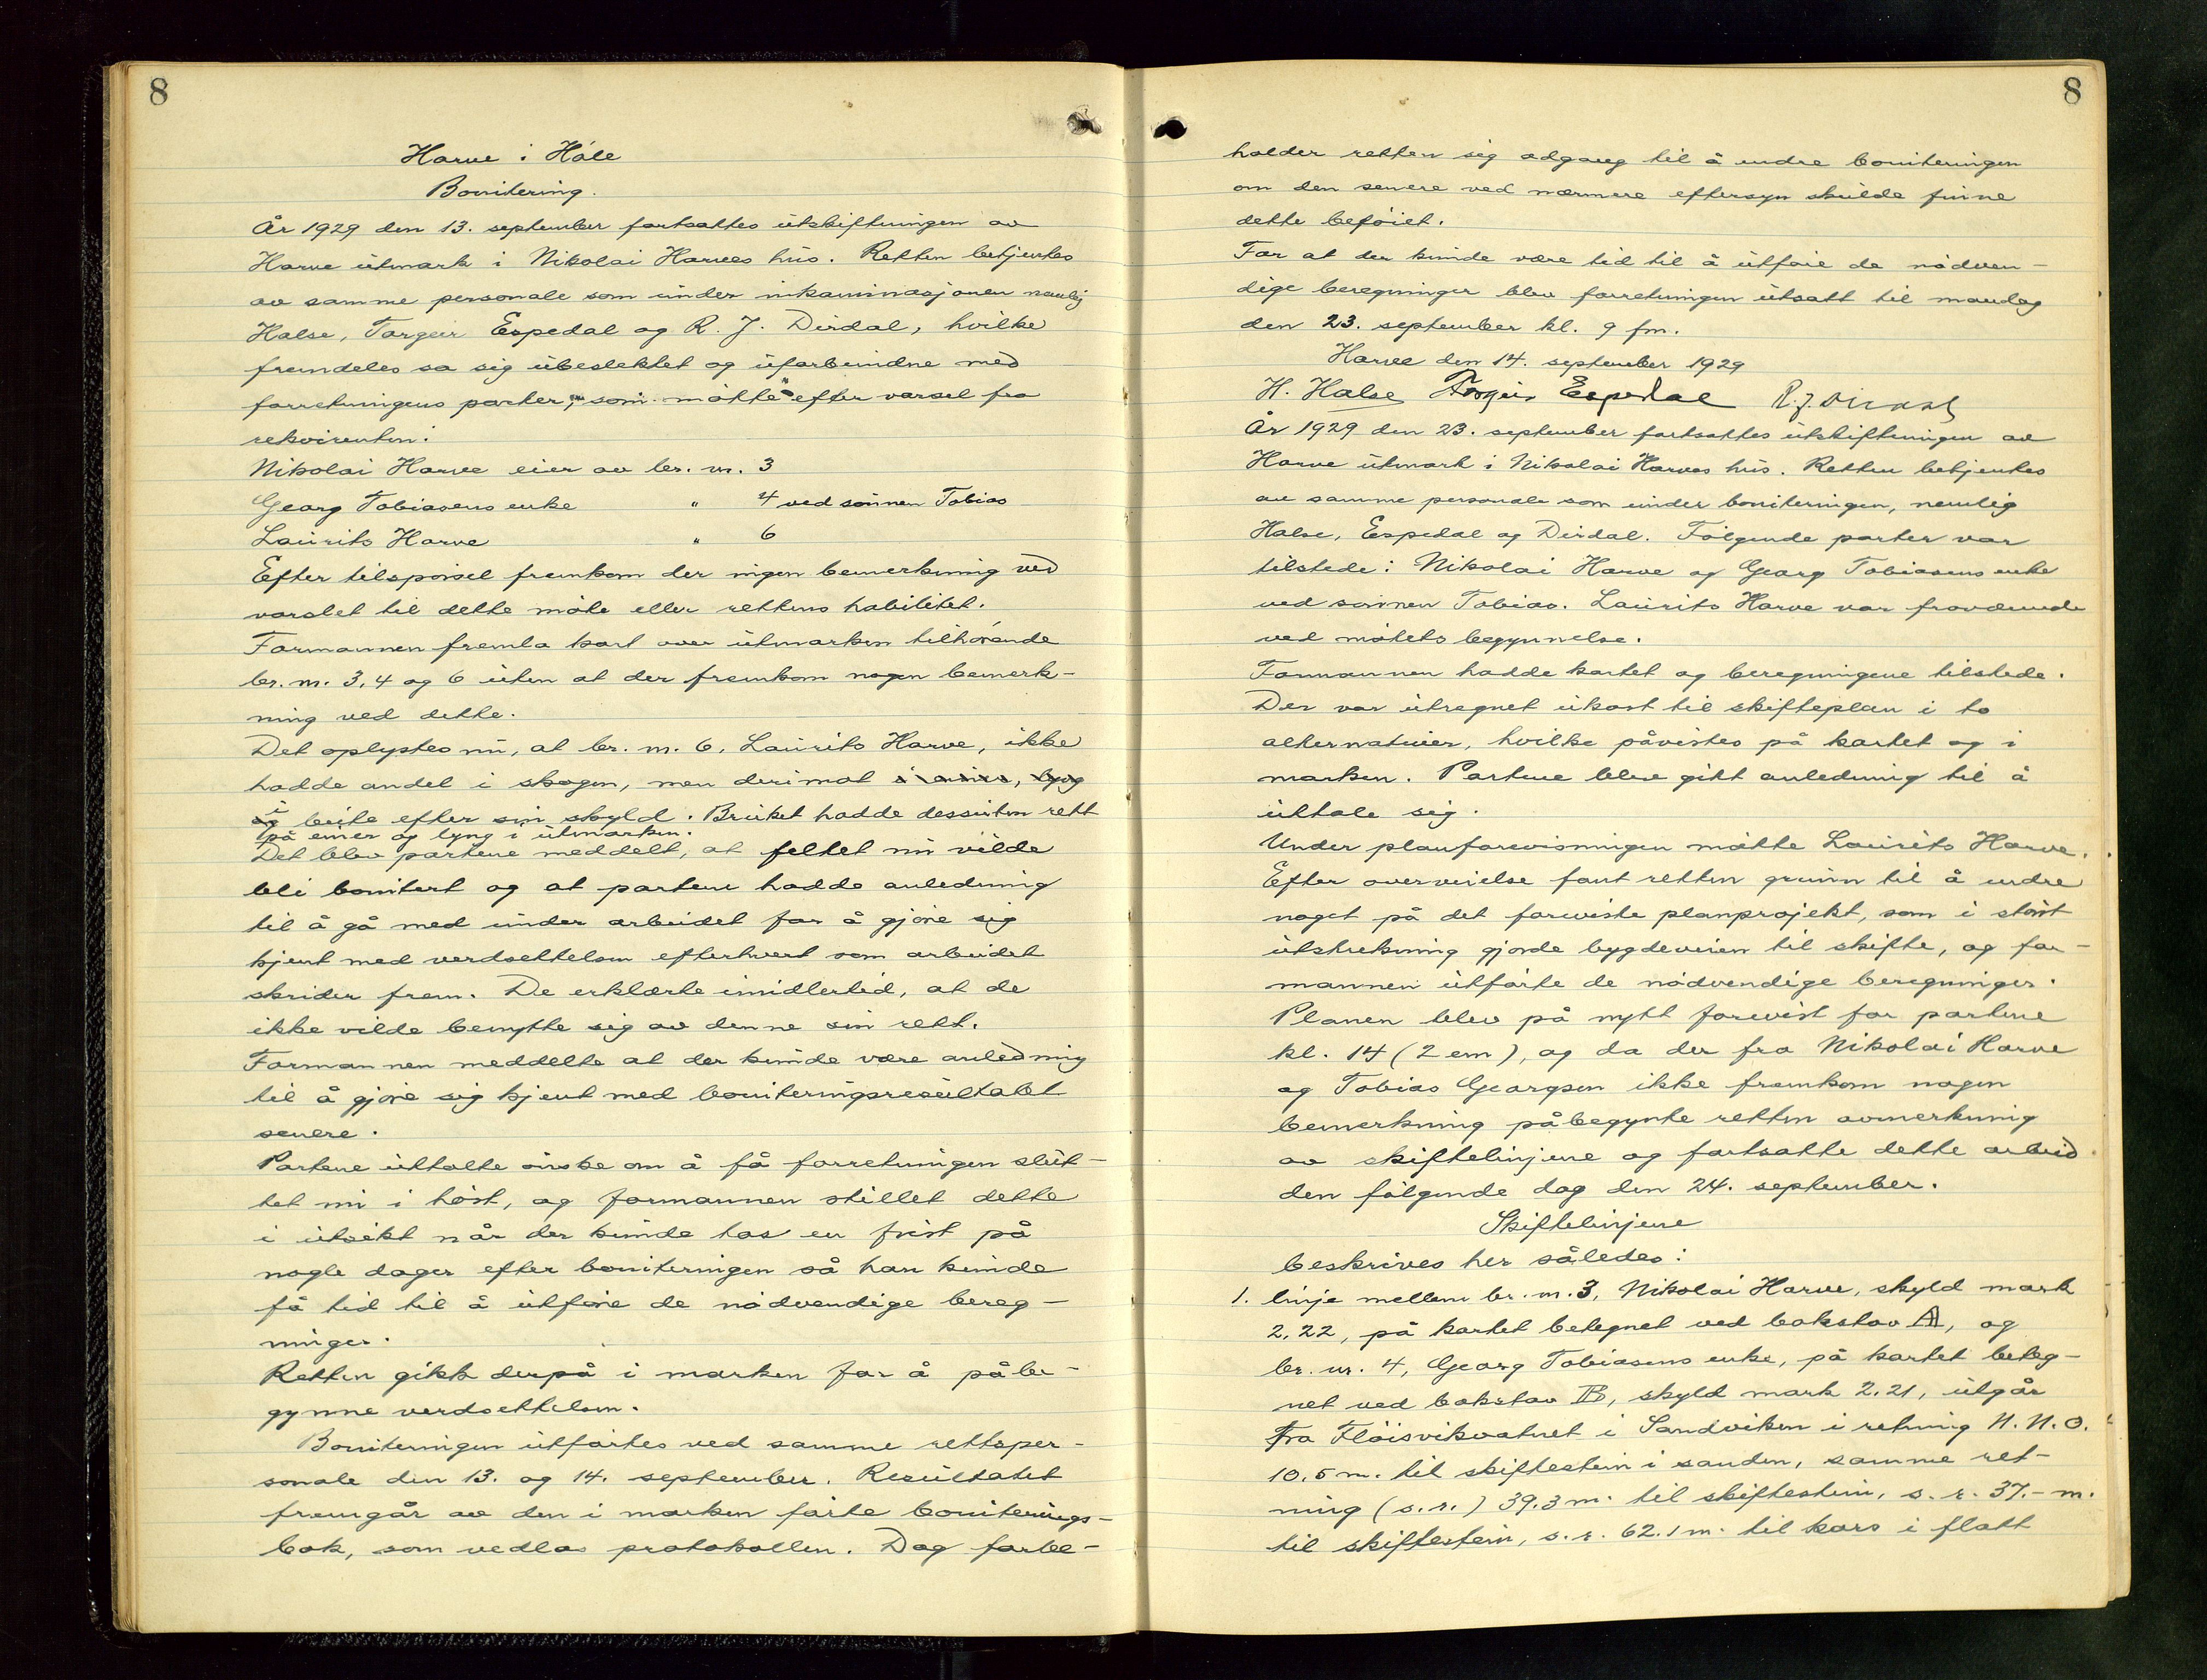 8
Harve i Håle
Bonitering.
År 1929 den 13. september fortsattes utskiftningen av
Harve utmark i Nikolai Harves hus. Retten betjentes
av samme personale som under inkaminasjonen nemlig
Halse, Torgeir Espedal og R. J. Dirdal, hvilke
fremdeles sa sig ubeslektet og uforbundne med
forretningens parter, som møtte efter varsel fra
rekvirenten:
Nikolai Harve eier av br. nr. 3
Georg Tobiasens enke " 4 ved sønnen Tobias
Laurits Harve " 6
Efter tilspørsel fremkom der ingen bemerkning ved
varslet til dette møte eller rettens habilitet.
Formannen fremla kart over utmarken tilhørende
br. nr. 3, 4 og 6 uten at der fremkom nogen bemerk-
ning ved dette.
Det oplystes nu, at br. nr. 6, Laurits Harve, ikke
hadde andel i skogen, men derimot
i beite efter sin skyld. Bruket hadde dessuten rett
på einer og lyng i utmarken.
Det blev partene meddelt, at feltet nu vilde
bli bonitert og at partene hadde anledning
til å gå med under arbeidet for å gjøre sig
kjent med verdsettelsen efterhvert som arbeidet
skrider frem. De erklærte imidlertid, at de
ikke vilde benytte sig av denne sin rett.
Formannen meddelte at der kunde være anledning
til å gjøre sig kjent med boniteringsresultatet
senere.
Partene uttalte ønske om å få forretningen slut-
tet nu i høst, og formannen stillet dette
i utsikt når der kunde tas en frist på
nogle dager efter boniteringen så han kunde
få tid til å utføre de nødvendige bereg-
ninger.
Retten gikk derpå i marken for å påbe-
gynne verdsettelsen.
Boniteringen utførtes ved samme rettsper-
sonale den 13. og 14. september. Resultatet
fremgår av den i marken førte boniterings-
bok, som vedlas protokollen. Dog forbe-
8
holder retten sig adgang til å endre boniteringen
om den senere ved nærmere eftersyn skulde finne
dette beføiet.
For at der kunde være tid til å utføre de nødven-
dige beregninger blev forretningen utsatt til mandag
den 23. september kl. 9 fm.
Harve den 14. september 1929
H. Halse Torgeir Espedal R. J. Dirdal
År 1929 den 23. september fortsattes utskiftningen av
Harve utmark i Nikolai Harves hus. Retten betjentes
av samme personale som under boniteringen, nemlig
Halse, Espedal og Dirdal. Følgende parter var
tilstede: Nikolai Harve og Georg Tobiasens enke
ved sønnen Tobias. Laurits Harve var fraværende
ved møtets begynnelse.
Formannen hadde kartet og beregningene tilstede.
Der var utregnet utkast til skifteplan i to
alternativer, hvilke påvistes på kartet og i
marken. Partene blev gitt anledning til å
uttale sig.
Under planforevisningen møtte Laurits Harve.
Efter overveielse fant retten grunn til å endre
noget på det foreviste planprojekt, som i størst
utstrekning gjorde bygdeveien til skifte, og for-
mannen utførte de nødvendige beregninger.
Planen blev på nytt forevist for partene
kl. 14 (2 em), og da der fra Nikolai Harve
og Tobias Georgsen ikke fremkom nogen
bemerkning påbegynte retten avmerkning
av skiftelinjene og fortsatte dette arbeid
den følgende dag den 24. september.
Skiftelinjene
beskrives her således:
1. linje mellem br. nr. 3, Nikolai Harve, skyld mark
2,22, på kartet betegnet ved bokstav A, og
br. nr. 4, Georg Tobiasens enke, på kartet beteg-
net ved bokstav B, skyld mark 2,21, utgår
fra Fløisvikvatnet i Sandviken i retning N.N.O.
10,5 m. til skiftestein i sanden, samme ret-
ning (s.r.) 39,3 m. til skiftestein, s.r. 37.- m.
til skiftestein, s.r. 62.1 m. til kors i flatt